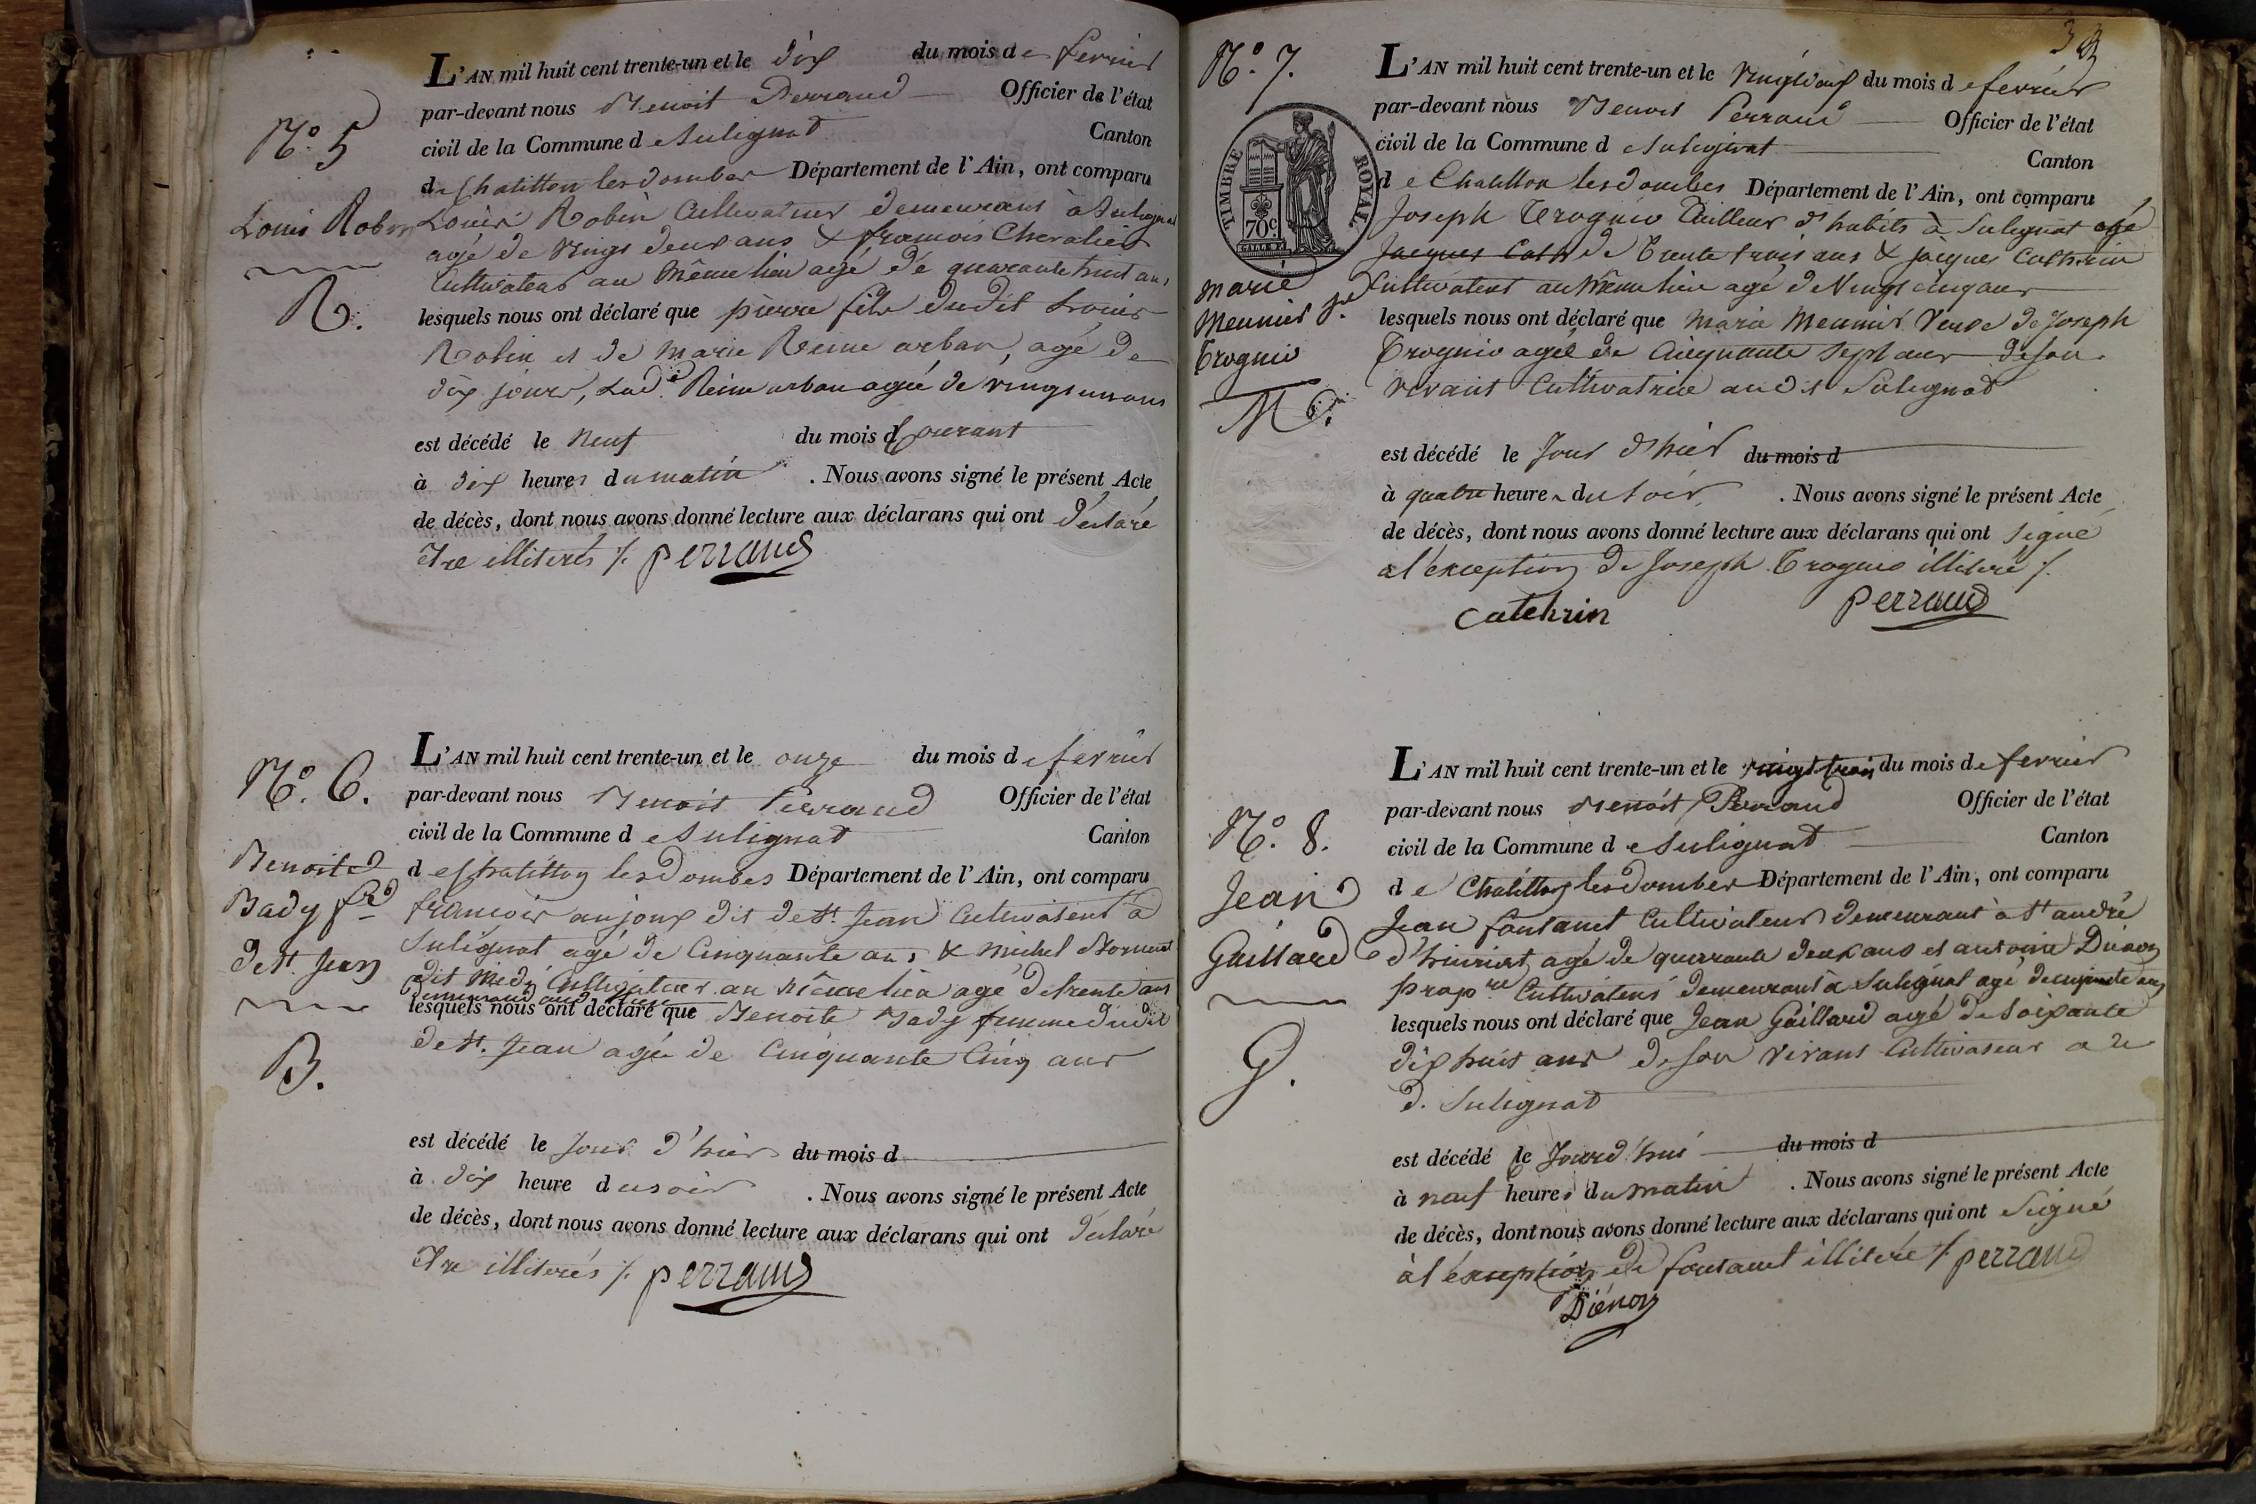 N.o 5
Louis Robin
R.
L'AN mil huit cent trente-un et le dix du mois de fevrier
par-devant nous Benoit Perraud Officier de l'état
civil de la Commune de Sulignat Canton
de Chatillon les dombes Département de l'Ain, ont comparu
Louis Robin Cultivateur demeurant à Sulignat
agé de vingt deux ans & francois Chevalier
Cultivateur au même lieu agé de quarante huit ans
lesquels nous ont déclaré que pierre fils dudit Louis
Robin et de marie Reine arban, agé de
dix jours, Lad.e Reine arban agée de vingt un ans
est décédé le neuf du mois Courant
à dix heures du matin . Nous avons signé le présent Acte
de décès, dont nous avons donné lecture aux déclarans qui ont déclaré
etre illiterés /. perraud
N.o 6.
Benoite
Bady f.e
de St. Jean
B.
L'AN mil huit cent trente-un et le onze du mois de fevrier
par-devant nous Benoit Perraud Officier de l'état
civil de la Commune de Sulignat Canton
de Chatillon les Dombes Département de l'Ain, ont comparu
francois anjoux dit de St. Jean Cultivateur à
Sulignat agé de Cinquante ans & michel
dit Cultivateur au même lieu agé de trente ans
lesquels nous ont déclaré que Benoite Bady femme dudit
de St. Jean agée de Cinquante Cinq ans
est décédé le Jour d'hier du mois d
à dix heure du soir . Nous avons signé le présent Acte
de décès, dont nous avons donné lecture aux déclarans qui ont déclaré
etre illiterés /. perraud
N.o 7.
TIMBRE ROYAL
70c
marie
Meunier v.e
Trognio
M.
L'AN mil huit cent trente-un et le du mois de fevrier
par-devant nous Benoit Perraud Officier de l'état
civil de la Commune de Sulignat Canton
de Chatillon les dombes Département de l'Ain, ont comparu
Joseph Trognio Tailleur d'habits à Sulignat agé
Jacques Cath de Trente trois ans & jacques Cathrin
Cultivateur au même lieu agé de Vingt cinq ans
lesquels nous ont déclaré que Marie Meunier Veuve de Joseph
Trognio agée de Cinquante Sept ans de son
vivant Cultivatrice au dit Sulignat
est décédé le Jour d'hier du mois d
à quatre heures du Soir . Nous avons signé le présent Acte
de décès, dont nous avons donné lecture aux déclarans qui ont signé
a l'exception de Joseph Trognio illiteré /.
catehrin perraud
N.o 8.
Jean
Gaillard
G.
L'AN mil huit cent trente-un et le vingt trois du mois de fevrier
par-devant nous Benoit Perraud Officier de l'état
civil de la Commune de Sulignat Canton
de Chatillon les Dombes Département de l'Ain, ont comparu
Jean fontanet Cultivateur demeurant à St andré
d'huiriat agé de quarante deux ans et antoine Diénon
prop.re Cultivateur demeurant à Sulignat agé de ans
lesquels nous ont déclaré que Jean Gaillard agé de Soixante
dix huit ans de son vivant Cultivateur a
d. Sulignat
est décédé le Jourd'hui du mois d
à neuf heures du matin . Nous avons signé le présent Acte
de décès, dont nous avons donné lecture aux déclarans qui ont Signé
à l'exception de fontanet illiteré /. perraud
Diénon